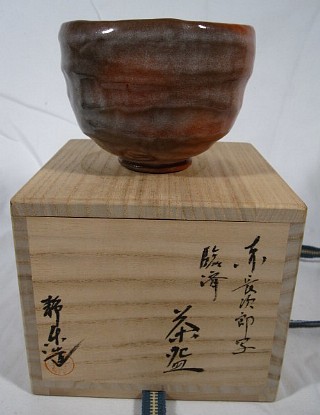 赤長次郎写
臨済
茶盌
静楽造